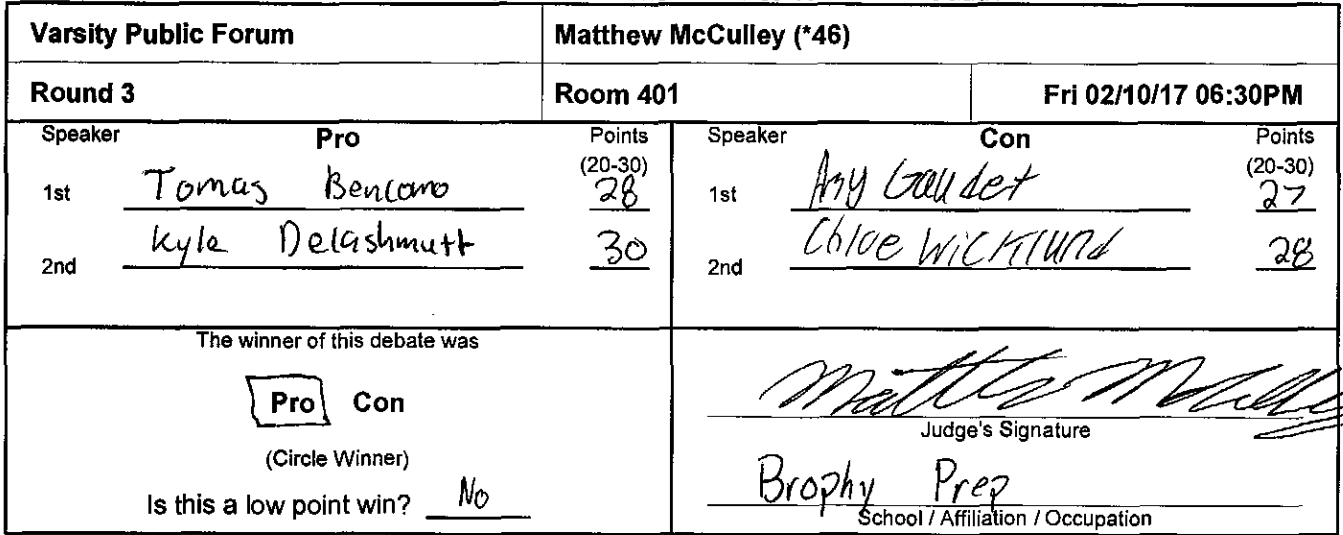 Varsity Public Forum Matthew McCulley (*46)
Round 3 Room 401 Fri 02/10/17 06:30PM
Speaker Pro Points
(20-30)
1st Tomas Bencomo 28
2nd Kyle Delashmutt 30
Speaker Con Points
(20-30)
1st Gaudet 27
2nd Chloe Wicklund 28
The winner of this debate was
Pro Con
(Circle Winner)
Is this a low point win? No
Matthew McCulley
Judge's Signature
Brophy Prep
School / Affiliation / Occupation